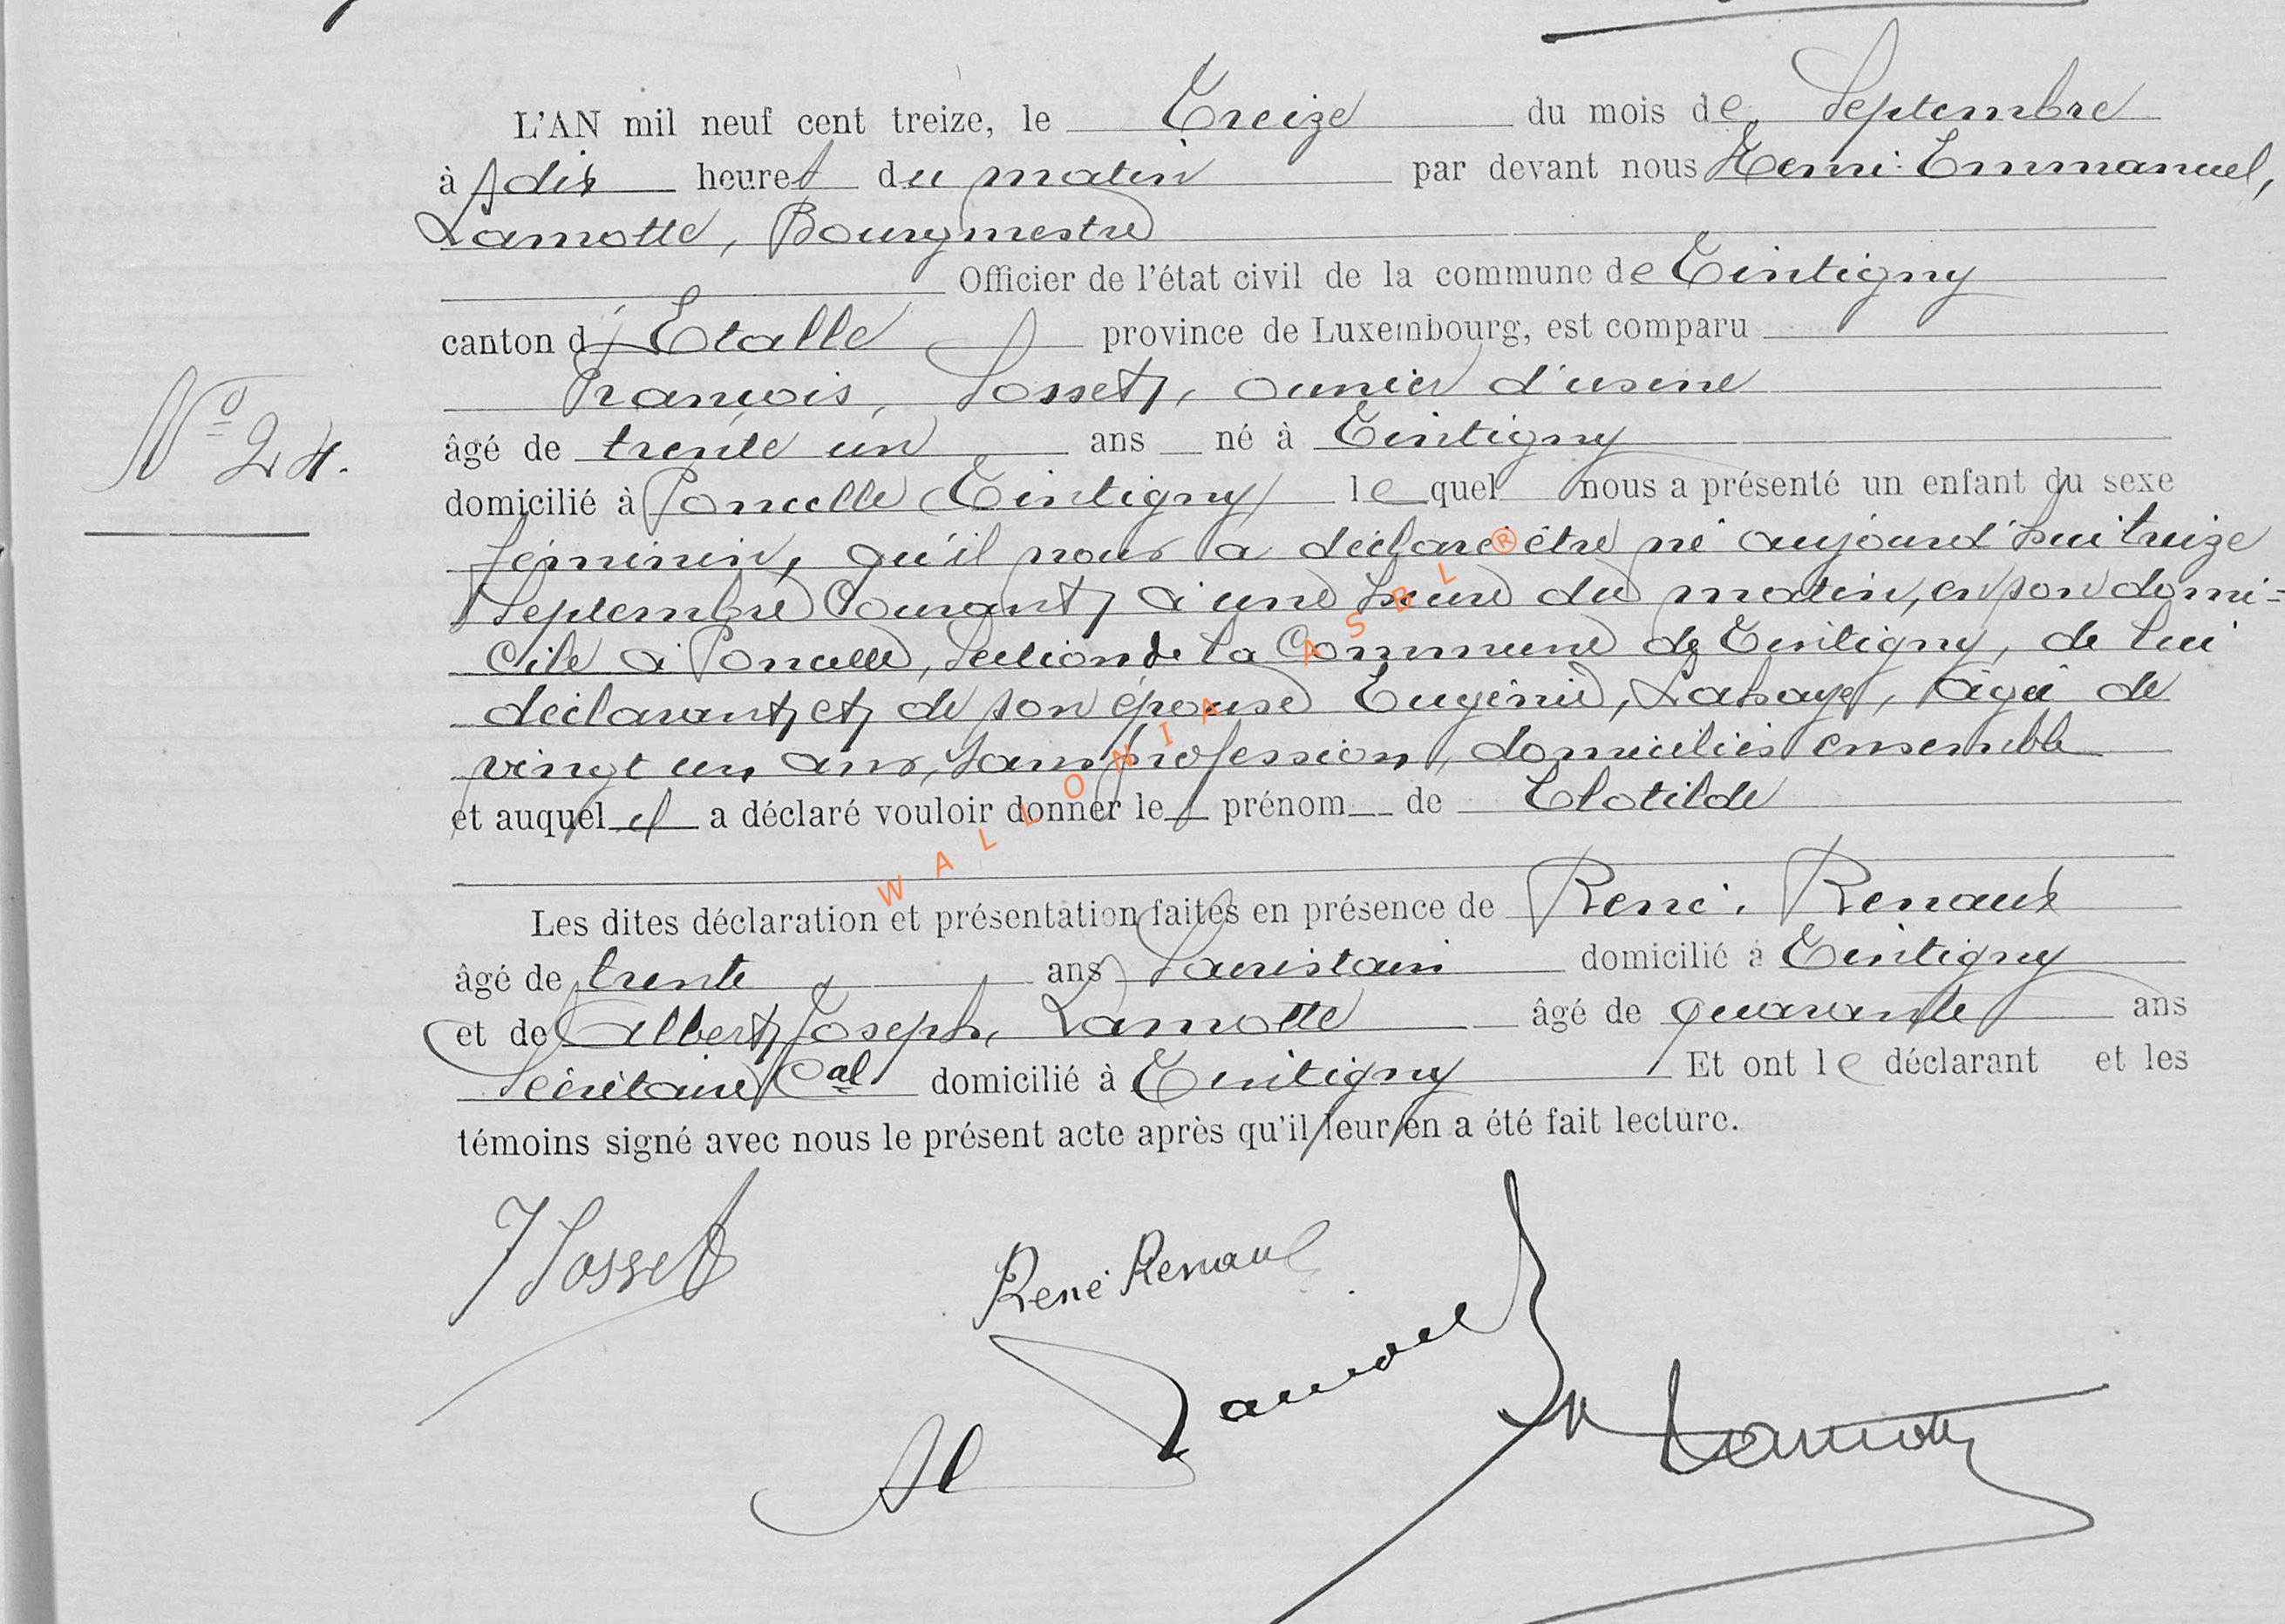 L'AN mil neuf cent treize, le Treize du mois de Septembre
à dix heures du matin par devant nous Henri-Emmanuel,
Lamotte, Bourgmestre
Officier de l'état civil de la commune de Tintigny
canton d'Etalle province de Luxembourg, est comparu
François, Sosset, ouvrier d'usine
N° 24.
âgé de trente un ans né à Tintigny
domicilié à Poncelle (Tintigny) lequel nous a présenté un enfant du sexe
féminin, qu'il nous a déclaré être né aujourd'hui treize
Septembre Courant, à une heure du matin, en son domi=
cile à Poncelle, Section de la Commune de Tintigny, de lui
déclarant et de son épouse Eugénie, Lahaye, âgée de
vingt un ans, sans profession, domiciliés ensemble
et auquel il a déclaré vouloir donner le prénom de Clotilde
Les dites déclaration et présentation faites en présence de René, Renaux
âgé de trente ans domicilié à Tintigny
et de Albert Joseph, Lamotte âgé de quarante ans
Secrétaire Cal domicilié à Tintigny Et ont le déclarant et les
témoins signé avec nous le présent acte après qu'il leur en a été fait lecture.
Sosset
René Renaux
Al Lamotte
Lamotte
WALLONIA ASBL ®